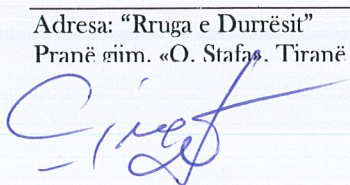 Adresa: “Rruga e Durrësit”
Pranë gjim. «O. Stafa», Tiranë